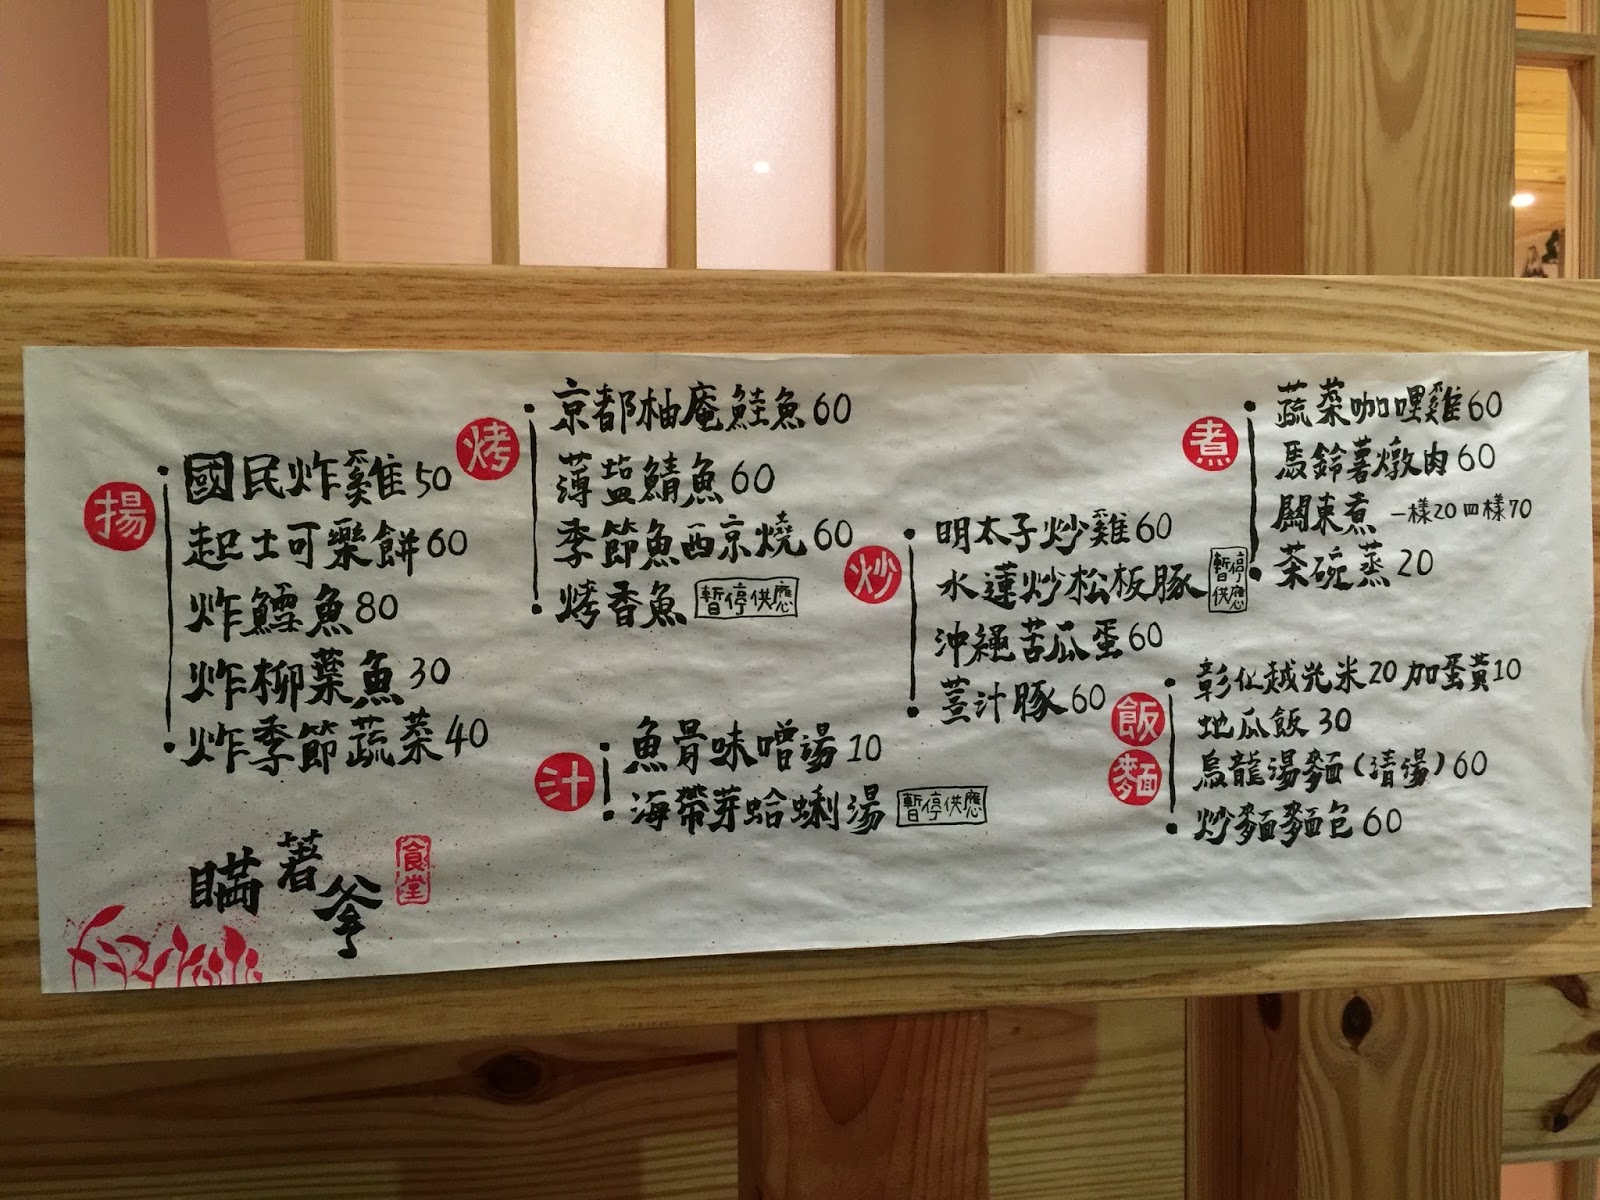 揚
國民炸雞50
起士可樂餅60
炸鱈魚80
炸柳葉魚30
炸季節蔬菜40
烤
京都柚庵鮭魚60
薄塩鯖魚60
季節魚西京燒60
烤香魚 暫停供應
汁
魚骨味噌湯10
海帶芽蛤蜊湯 暫停供應
炒
明太子炒雞60
水蓮炒松板豚 暫停供應
沖繩苦瓜蛋60
薑汁豚60
煮
蔬菜咖哩雞60
馬鈴薯燉肉60
關東煮 一樣20四樣70
茶碗蒸20
飯麵
彰化越光米20加蛋黃10
地瓜飯30
烏龍湯麵(清湯)60
炒麵麵包60
瞞著爹
食堂